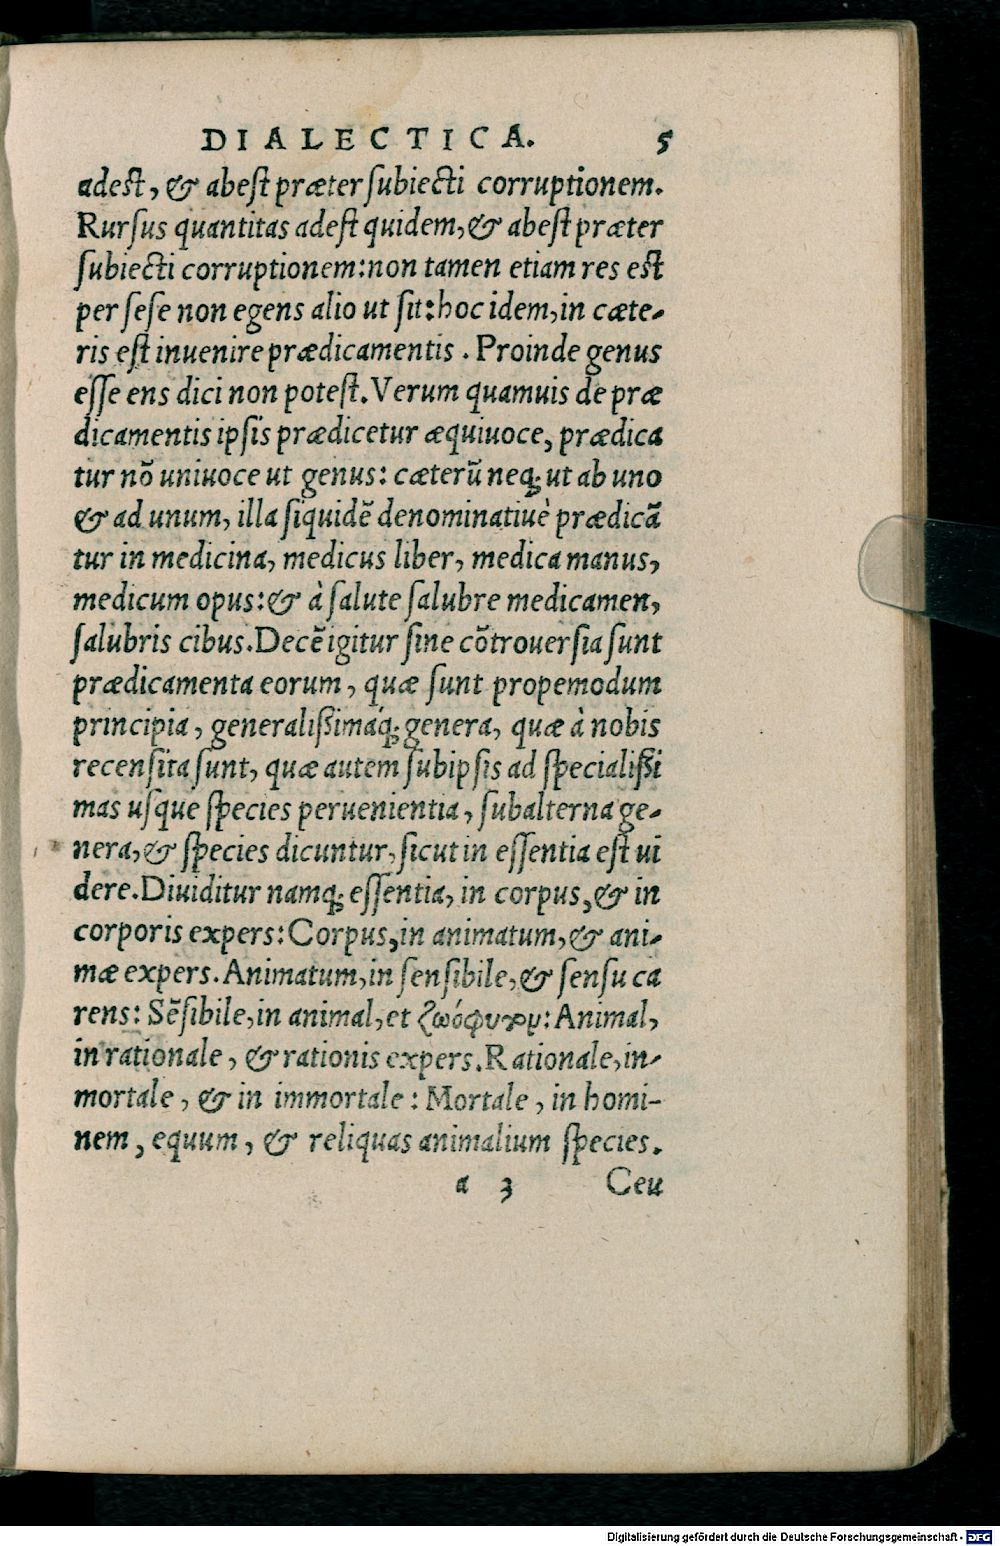 DIALECTICA. 5
adest, & abest præter subiecti corruptionem.
Rursus quantitas adest quidem, & abest præter
subiecti corruptionem: non tamen etiam res est
per sese non egens alio ut sit: hoc idem, in cæte-
ris est inuenire prædicamentis. Proinde genus
esse ens dici non potest. Verum quamuis de præ
dicamentis ipsis prædicetur æquiuoce, prædica
tur nõ uniuoce ut genus: cæterũ neq; ut ab uno
& ad unum, illa siquidẽ denominatiuè prædicã
tur in medicina, medicus liber, medica manus,
medicum opus: & à salute salubre medicamen,
salubris cibus. Decẽ igitur sine cõtrouersia sunt
prædicamenta eorum, quæ sunt propemodum
principia, generalißimáq; genera, quæ à nobis
recensita sunt, quæ autem sub ipsis ad specialißi
mas usque species peruenientia, subalterna ge-
nera, & species dicuntur, sicut in essentia est ui
dere. Diuiditur namq; essentia, in corpus, & in
corporis expers: Corpus, in animatum, & ani-
mæ expers. Animatum, in sensibile, & sensu ca
rens: Sẽsibile, in animal, et ζωόφυτον: Animal,
in rationale, & rationis expers. Rationale, in-
mortale, & in immortale: Mortale, in homi-
nem, equum, & reliquas animalium species.
a 3 Ceu
Digitalisierung gefördert durch die Deutsche Forschungsgemeinschaft - DFG